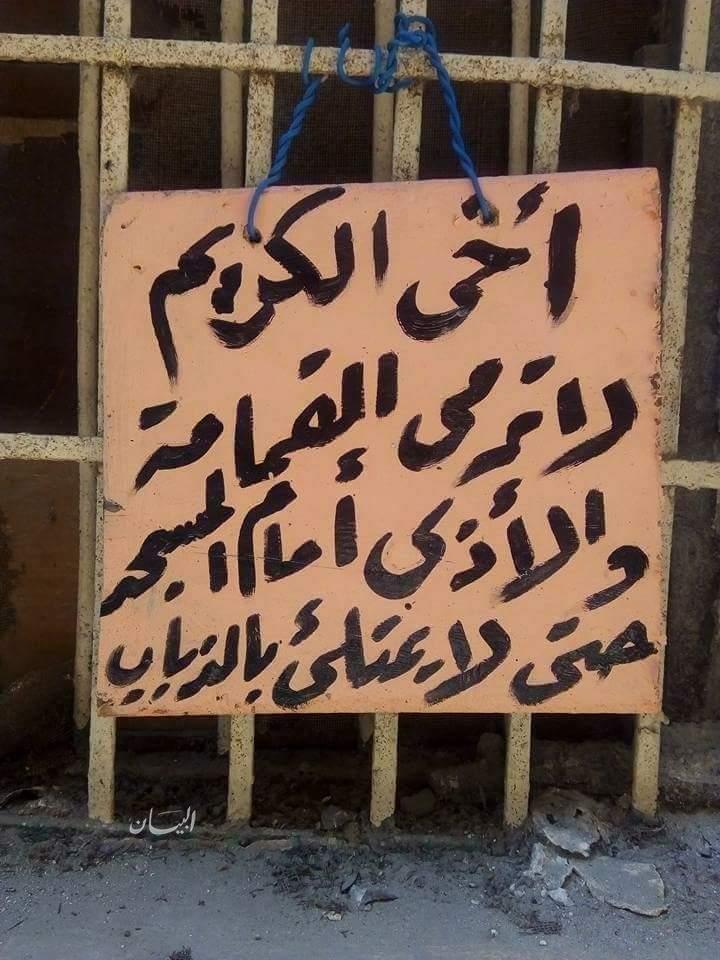 أخى الكريم
لا ترمى القمامة
والأذى أمام المسجد
حتى لا يمتلئ بالذباب
البيان